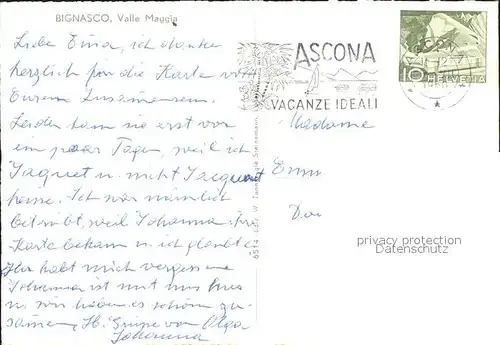 BIGNASCO, Valle Maggia
Liebe Erna, ich danke
herzlich für die Karte von
Eurem Zusammensein.
Leider kam sie erst vor
ein paar Tagen, weil ich
Jaquet u. nicht Jacquet
heisse. Ich war nämlich
betrübt, weil Johanna ihre
Karte bekam u. ich glaubte
Ihr habt mich vergessen.
Johanna ist mit uns hier
u. wir haben es schön zu-
sammen. Hl. Grüsse von Olga
Johanna
ASCONA
VACANZE IDEALI
ASCONA
10 HELVETIA
Madame
Erna
6514 Edit. W. Tannaz
privacy protection
Datenschutz